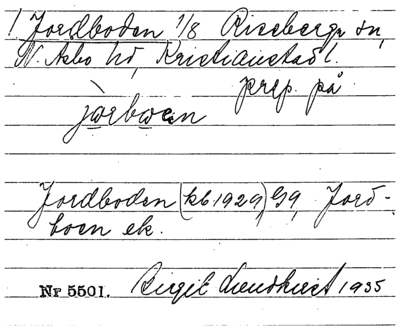 1 Jordboden 1/8 Riseberga sn,
N. Åsbo hd, Kristianstad l.
prep. på
jɷrbɷen
Jordboden (kb 1929) G9, Jord-
boen ek.
Nr 5501. Birgit Lundkvist 1935